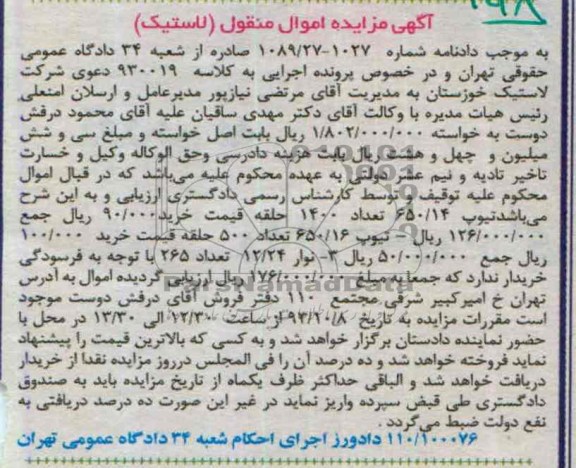 آگهی مزایده اموال منقول (لاستیک)
به موجب دادنامه شماره ۱۰۲۷-۱۰۸۹/۲۷ صادره از شعبه ۳۴ دادگاه عمومی
حقوقی تهران و در خصوص پرونده اجرایی به کلاسه ۹۳۰۰۱۹ دعوی شرکت
لاستیک خوزستان به مدیریت آقای مرتضی نیازپور مدیرعامل و ارسلان امنعلی
رئیس هیات مدیره با وکالت آقای دکتر مهدی ساقیان علیه آقای محمود درفش
دوست به خواسته ۱/۸۰۲/۰۰۰/۰۰۰ ریال بابت اصل خواسته و مبلغ سی و شش
میلیون و چهل و هشت ریال بابت هزینه دادرسی وحق الوکاله وکیل و خسارت
تاخیر تادیه و نیم عشر دولتی به عهده محکوم علیه می‌باشد که در قبال اموال
محکوم علیه توقیف و توسط کارشناس رسمی دادگستری ارزیابی و به این شرح
می‌باشدتیوپ ۶۵۰/۱۴ تعداد ۱۴۰۰ حلقه قیمت خرید۹۰/۰۰۰ ریال جمع
۱۲۶/۰۰۰/۰۰۰ ریال – تیوپ ۶۵۰/۱۶ تعداد ۵۰۰ حلقه قیمت خرید ۱۰۰/۰۰۰
ریال جمع ۵۰/۰۰۰/۰۰۰ ریال ۳-نوار ۱۲/۲۴ تعداد ۲۶۵ با توجه به فرسودگی
خریدار ندارد که جمعا به مبلغ ۱۷۶/۰۰۰/۰۰۰ ریال ارزیابی گردیده اموال به آدرس
تهران خ امیرکبیر شرقی مجتمع ۱۱۰ دفتر فروش آقای درفش دوست موجود
است مقررات مزایده به تاریخ ۹۳/۱۰/۸ از ساعت ۱۲/۳۰ الی ۱۳/۳۰ در محل با
حضور نماینده دادستان برگزار خواهد شد و به کسی که بالاترین قیمت را پیشنهاد
نماید فروخته خواهد شد و ده درصد آن را فی المجلس درروز مزایده نقدا از خریدار
دریافت خواهد شد و الباقی حداکثر ظرف یکماه از تاریخ مزایده باید به صندوق
دادگستری طی قبض سپرده واریز نماید در غیر این صورت ده درصد دریافتی به
نفع دولت ضبط می‌گردد .
۱۱۰/۱۰۰۰۷۶ دادورز اجرای احکام شعبه ۳۴ دادگاه عمومی تهران